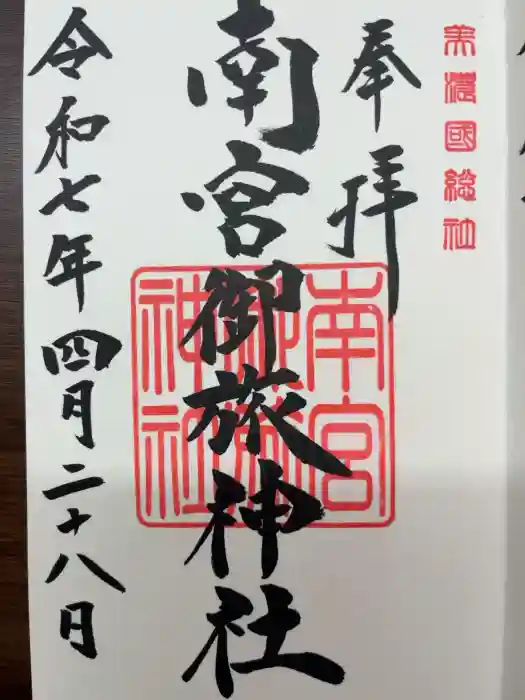 美濃國総社
奉拝
南宮御旅神社
南宮
御旅
神社
令和七年四月二十八日